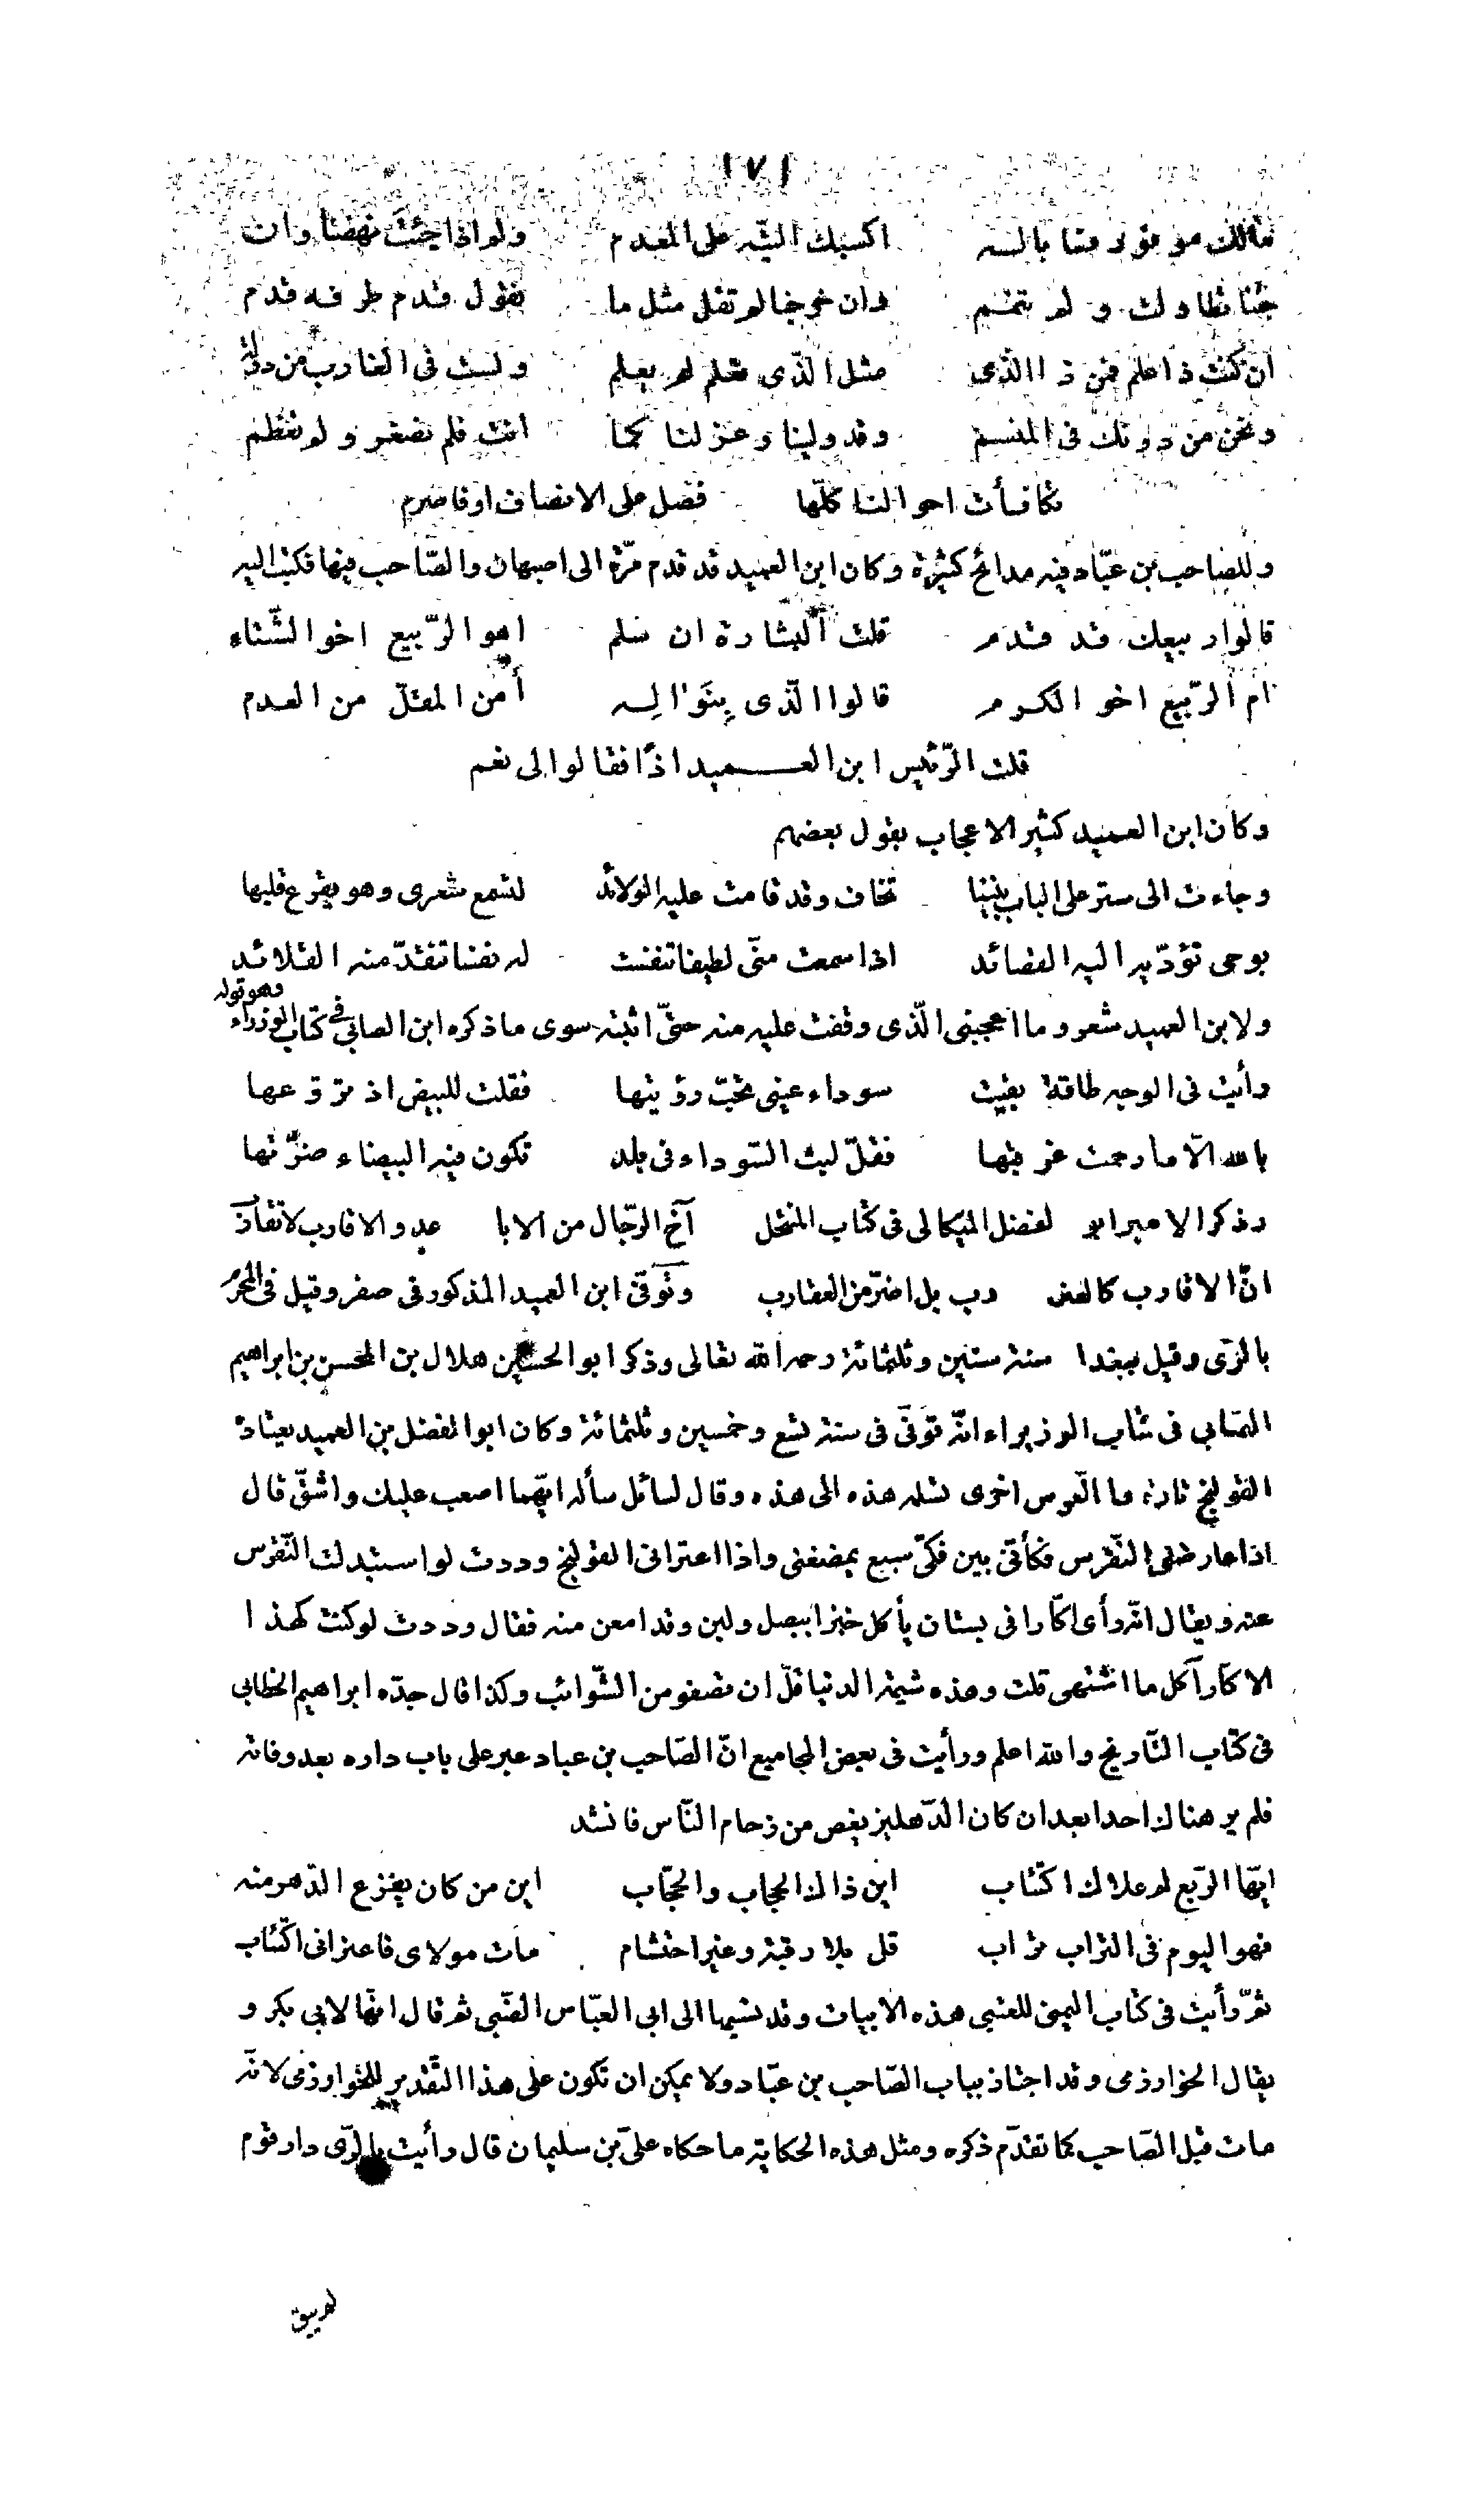 ١٧١
مالك موفور فما باله اكسبك التيه على المعدم ولو اذا جئت نهضنا وان
جئنا تطاولت ولم تتمم وان خرجنا لم تقل مثل ما تقول قدم طرفه قدم
ان كنت ذا علم فمن ذا الذى مثل الذى تعلم لم يعلم ولست فى الغارب من دولة
ونحن من دونك فى المنسم وقد ولينا وعزلنا كما انت فلم نصغر ولم نعظم
تكافأت احوالنا كلّها فصل على الانصاف او فاصرم
وللصاحب بن عبّاد فيه مدائح كثيرة وكان ابن العميد قد قدم مرّة الى اصبهان والصّاحب فيها فكتب اليه
قالوا ربيعك قد قدم قلت البشارة ان سلم اهو الرّبيع اخو الشّتاء
ام الرّبيع اخو الكرم قالوا الّذى بِنَوالِه أمن المقلّ من العدم
قلت الرّئيس ابن العميد اذًا فقالوا لى نعم
وكان ابن العميد كثير الاعجاب بقول بعضهم
وجاءت الى ستر على الباب بيننا تخاف وقد قامت عليه الولائد لتسمع شعرى وهو يقرع قلبها
بوحى تؤدّيه اليه القصائد اذا سمعت منّى لطيفا تنفست له نفسا تنقدّ منه القلائد
ولابن العميد شعر وما اعجبنى الّذى وقفت عليه منه حتّى اثبته سوى ما ذكره ابن الصابى فى كتاب الوزراء وهو قوله
رأيت فى الوجه طاقة بقيت سوداء عينى تحبّ رؤيتها فقلت للبيض اذ تروّعها
بالله الّا ما رحمت غربتها فقلّ لبث السّوداء فى بلد تكون فيه البيضاء ضرّتها
وذكر الامير ابو لفضل الميكالى فى كتاب المنتحل آخ الرّجال من الابا عد والاقارب لا تقارب
انّ الاقارب كالعقا رب بل اضرّ من العقارب وتوفّى ابن العميد المذكور فى صفر وقيل فى المحرم
بالرّى وقيل ببغدا سنة ستين وثلثمائة رحمه الله تعالى وذكر ابو الحسين هلال بن المحسن بن ابراهيم
الصّابى فى كتاب الوزراء انّه توفّى فى سنة تسع وخمسين وثلثمائة وكان ابو الفضل بن العميد يعتاده
القولنج تارة والنّقرس اخرى تسلمه هذه الى هذه وقال لسائل سأله ايّهما اصعب عليك واشقّ قال
اذا عارضنى النّقرس فكأنّى بين فكّى سبع يمضغنى واذا اعترانى القولنج وددت لو استبدلت النّقرس
عنه ويقال انّه رأى اكّارا فى بستان يأكل خبزا ببصل ولبن وقد امعن منه فقال وددت لو كنت كهذا
الاكّار آكل ما اشتهى قلت وهذه شيمة الدنيا قلّ ان تصفو من الشّوائب وكذا قال جدّه ابراهيم الخطابى
فى كتاب التّاريخ والله اعلم ورأيت فى بعض المجاميع انّ الصّاحب بن عباد عبر على باب داره بعد وفاته
فلم ير هناك احدا بعد ان كان الدّهليز يغص من زحام النّاس فانشد
ايّها الرّبع لم علاك اكتئاب اين ذاك الحجاب والحجّاب اين من كان يفزع الدّهر منه
فهو اليوم فى التراب تراب قل بلا رقبة وغير احتشام مات مولاى فاعترانى اكتئاب
ثمّ رأيت فى كتاب اليمنى للعتبى هذه الابيات وقد نسبها الى ابى العبّاس الضّبى ثم قال انّها لابى بكر و
يقال الخوارزمى وقد اجتاز بباب الصّاحب بن عبّاد ولا يمكن ان تكون على هذا التّقدير للخوارزمى لانّه
مات قبل الصّاحب كما تقدّم ذكره ومثل هذه الحكاية ما حكاه علىّ بن سليمان قال رأيت بالرّى دار قوم
لم يبق